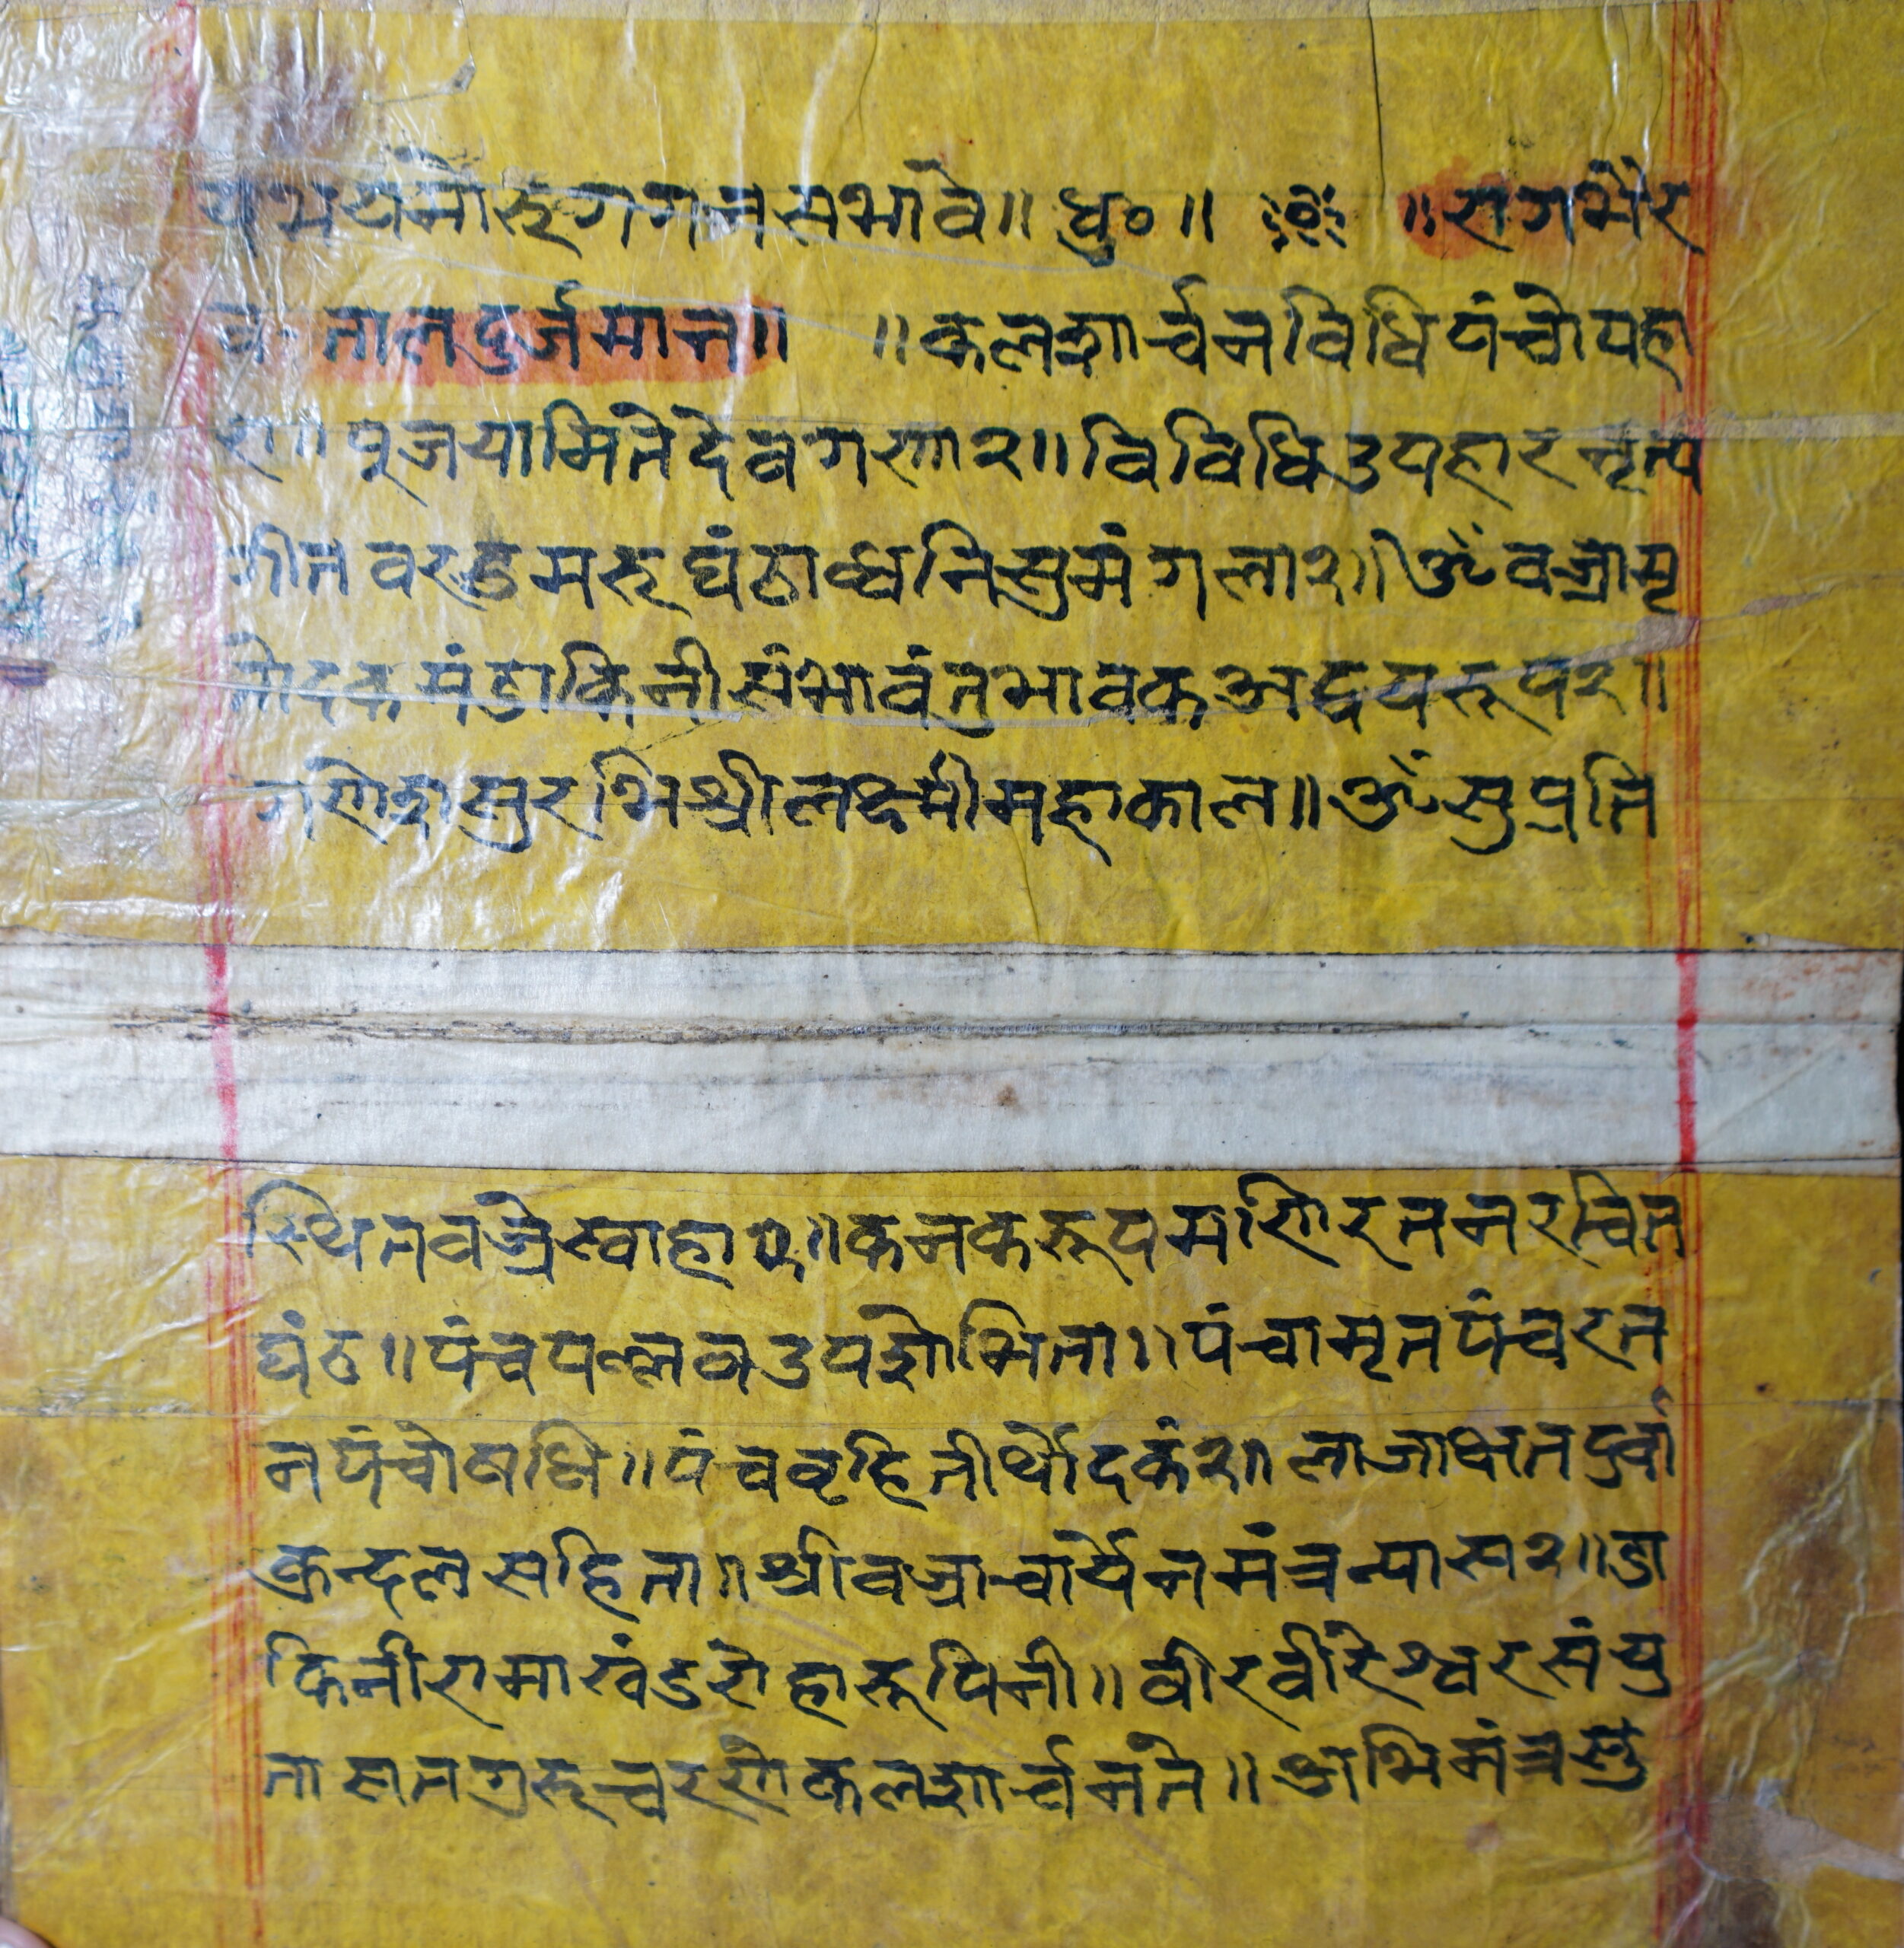 पभयनोरुगगनसभावे॥ धु०॥ ॥रागभैर
व तालदुर्जमान॥ ॥कलशार्चनविधिपंचोपहा
रा॥पूजयामितेदेवगणा२॥विविधिउपहारनृत्य
गीतवरडमरुघंठाध्वनिसुमंगला२॥ॐवज्रामृ
तोदकमंठाकिनीसंभावंतुभावकअद्वयरूप२॥
गणेशसुरभिश्रीलक्ष्मीमहाकाल॥ॐसुप्रति
स्थितवज्रेस्वाहा२॥कनकरूपमाणिरतनरचित
घंठ॥पंचपल्लवउपशोभिता॥पंचामृतपंचरत
नपंचोषधि॥पंचवृहितीर्थोदकं२॥लाजाक्षतदुर्वा
कुन्दलसहिता॥श्रीवज्राचार्येनमंत्रन्यास२॥डा
किनीरामाखंडरोहारूपिनी॥वीरवीरेश्वरसंयु
ता सतगुरूचरणेकलशार्चनंते॥अभिमंत्रसु